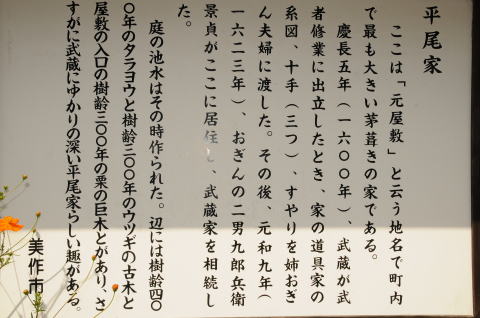 平尾家
ここは「元屋敷」と云う地名で町内
で最も大きい茅葺きの家である。
慶長五年(一六〇〇年)、武蔵が武
者修業に出立したとき、家の道具家の
系図、十手(三つ)、すやりを姉おぎ
ん夫婦に渡した。その後、元和九年(
一六二三年)、おぎんの二男九郎兵衛
景貞がここに居住し、武蔵家を相続し
た。
庭の池水はその時作られた。辺には樹齢四〇
〇年のタラヨウと樹齢三〇〇年のウツギの古木と
屋敷の入口の樹齢三〇〇年の栗の巨木とがあり、さ
すがに武蔵にゆかりの深い平尾家らしい趣がある。
美作市